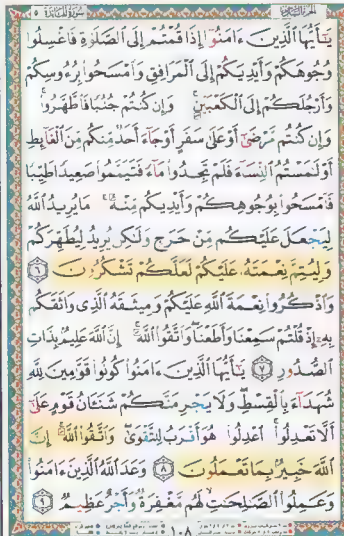 الجزء السادس سورة المائدة ٥
يَٰٓأَيُّهَا ٱلَّذِينَ ءَامَنُوٓا۟ إِذَا قُمْتُمْ إِلَى ٱلصَّلَوٰةِ فَٱغْسِلُوا۟
وُجُوهَكُمْ وَأَيْدِيَكُمْ إِلَى ٱلْمَرَافِقِ وَٱمْسَحُوا۟ بِرُءُوسِكُمْ
وَأَرْجُلَكُمْ إِلَى ٱلْكَعْبَيْنِ ۚ وَإِن كُنتُمْ جُنُبًا فَٱطَّهَّرُوا۟ ۚ
وَإِن كُنتُم مَّرْضَىٰٓ أَوْ عَلَىٰ سَفَرٍ أَوْ جَآءَ أَحَدٌ مِّنكُم مِّنَ ٱلْغَآئِطِ
أَوْ لَٰمَسْتُمُ ٱلنِّسَآءَ فَلَمْ تَجِدُوا۟ مَآءً فَتَيَمَّمُوا۟ صَعِيدًا طَيِّبًا
فَٱمْسَحُوا۟ بِوُجُوهِكُمْ وَأَيْدِيكُم مِّنْهُ ۚ مَا يُرِيدُ ٱللَّهُ
لِيَجْعَلَ عَلَيْكُم مِّنْ حَرَجٍ وَلَٰكِن يُرِيدُ لِيُطَهِّرَكُمْ
وَلِيُتِمَّ نِعْمَتَهُۥ عَلَيْكُمْ لَعَلَّكُمْ تَشْكُرُونَ ٦
وَٱذْكُرُوا۟ نِعْمَةَ ٱللَّهِ عَلَيْكُمْ وَمِيثَٰقَهُ ٱلَّذِى وَاثَقَكُم
بِهِۦٓ إِذْ قُلْتُمْ سَمِعْنَا وَأَطَعْنَا ۖ وَٱتَّقُوا۟ ٱللَّهَ ۚ إِنَّ ٱللَّهَ عَلِيمٌۢ بِذَاتِ
ٱلصُّدُورِ ٧ يَٰٓأَيُّهَا ٱلَّذِينَ ءَامَنُوا۟ كُونُوا۟ قَوَّٰمِينَ لِلَّهِ
شُهَدَآءَ بِٱلْقِسْطِ ۖ وَلَا يَجْرِمَنَّكُمْ شَنَـَٔانُ قَوْمٍ عَلَىٰٓ
أَلَّا تَعْدِلُوا۟ ۚ ٱعْدِلُوا۟ هُوَ أَقْرَبُ لِلتَّقْوَىٰ ۖ وَٱتَّقُوا۟ ٱللَّهَ ۚ إِنَّ
ٱللَّهَ خَبِيرٌۢ بِمَا تَعْمَلُونَ ٨ وَعَدَ ٱللَّهُ ٱلَّذِينَ ءَامَنُوا۟
وَعَمِلُوا۟ ٱلصَّٰلِحَٰتِ ۙ لَهُم مَّغْفِرَةٌ وَأَجْرٌ عَظِيمٌ ٩
١٠٨